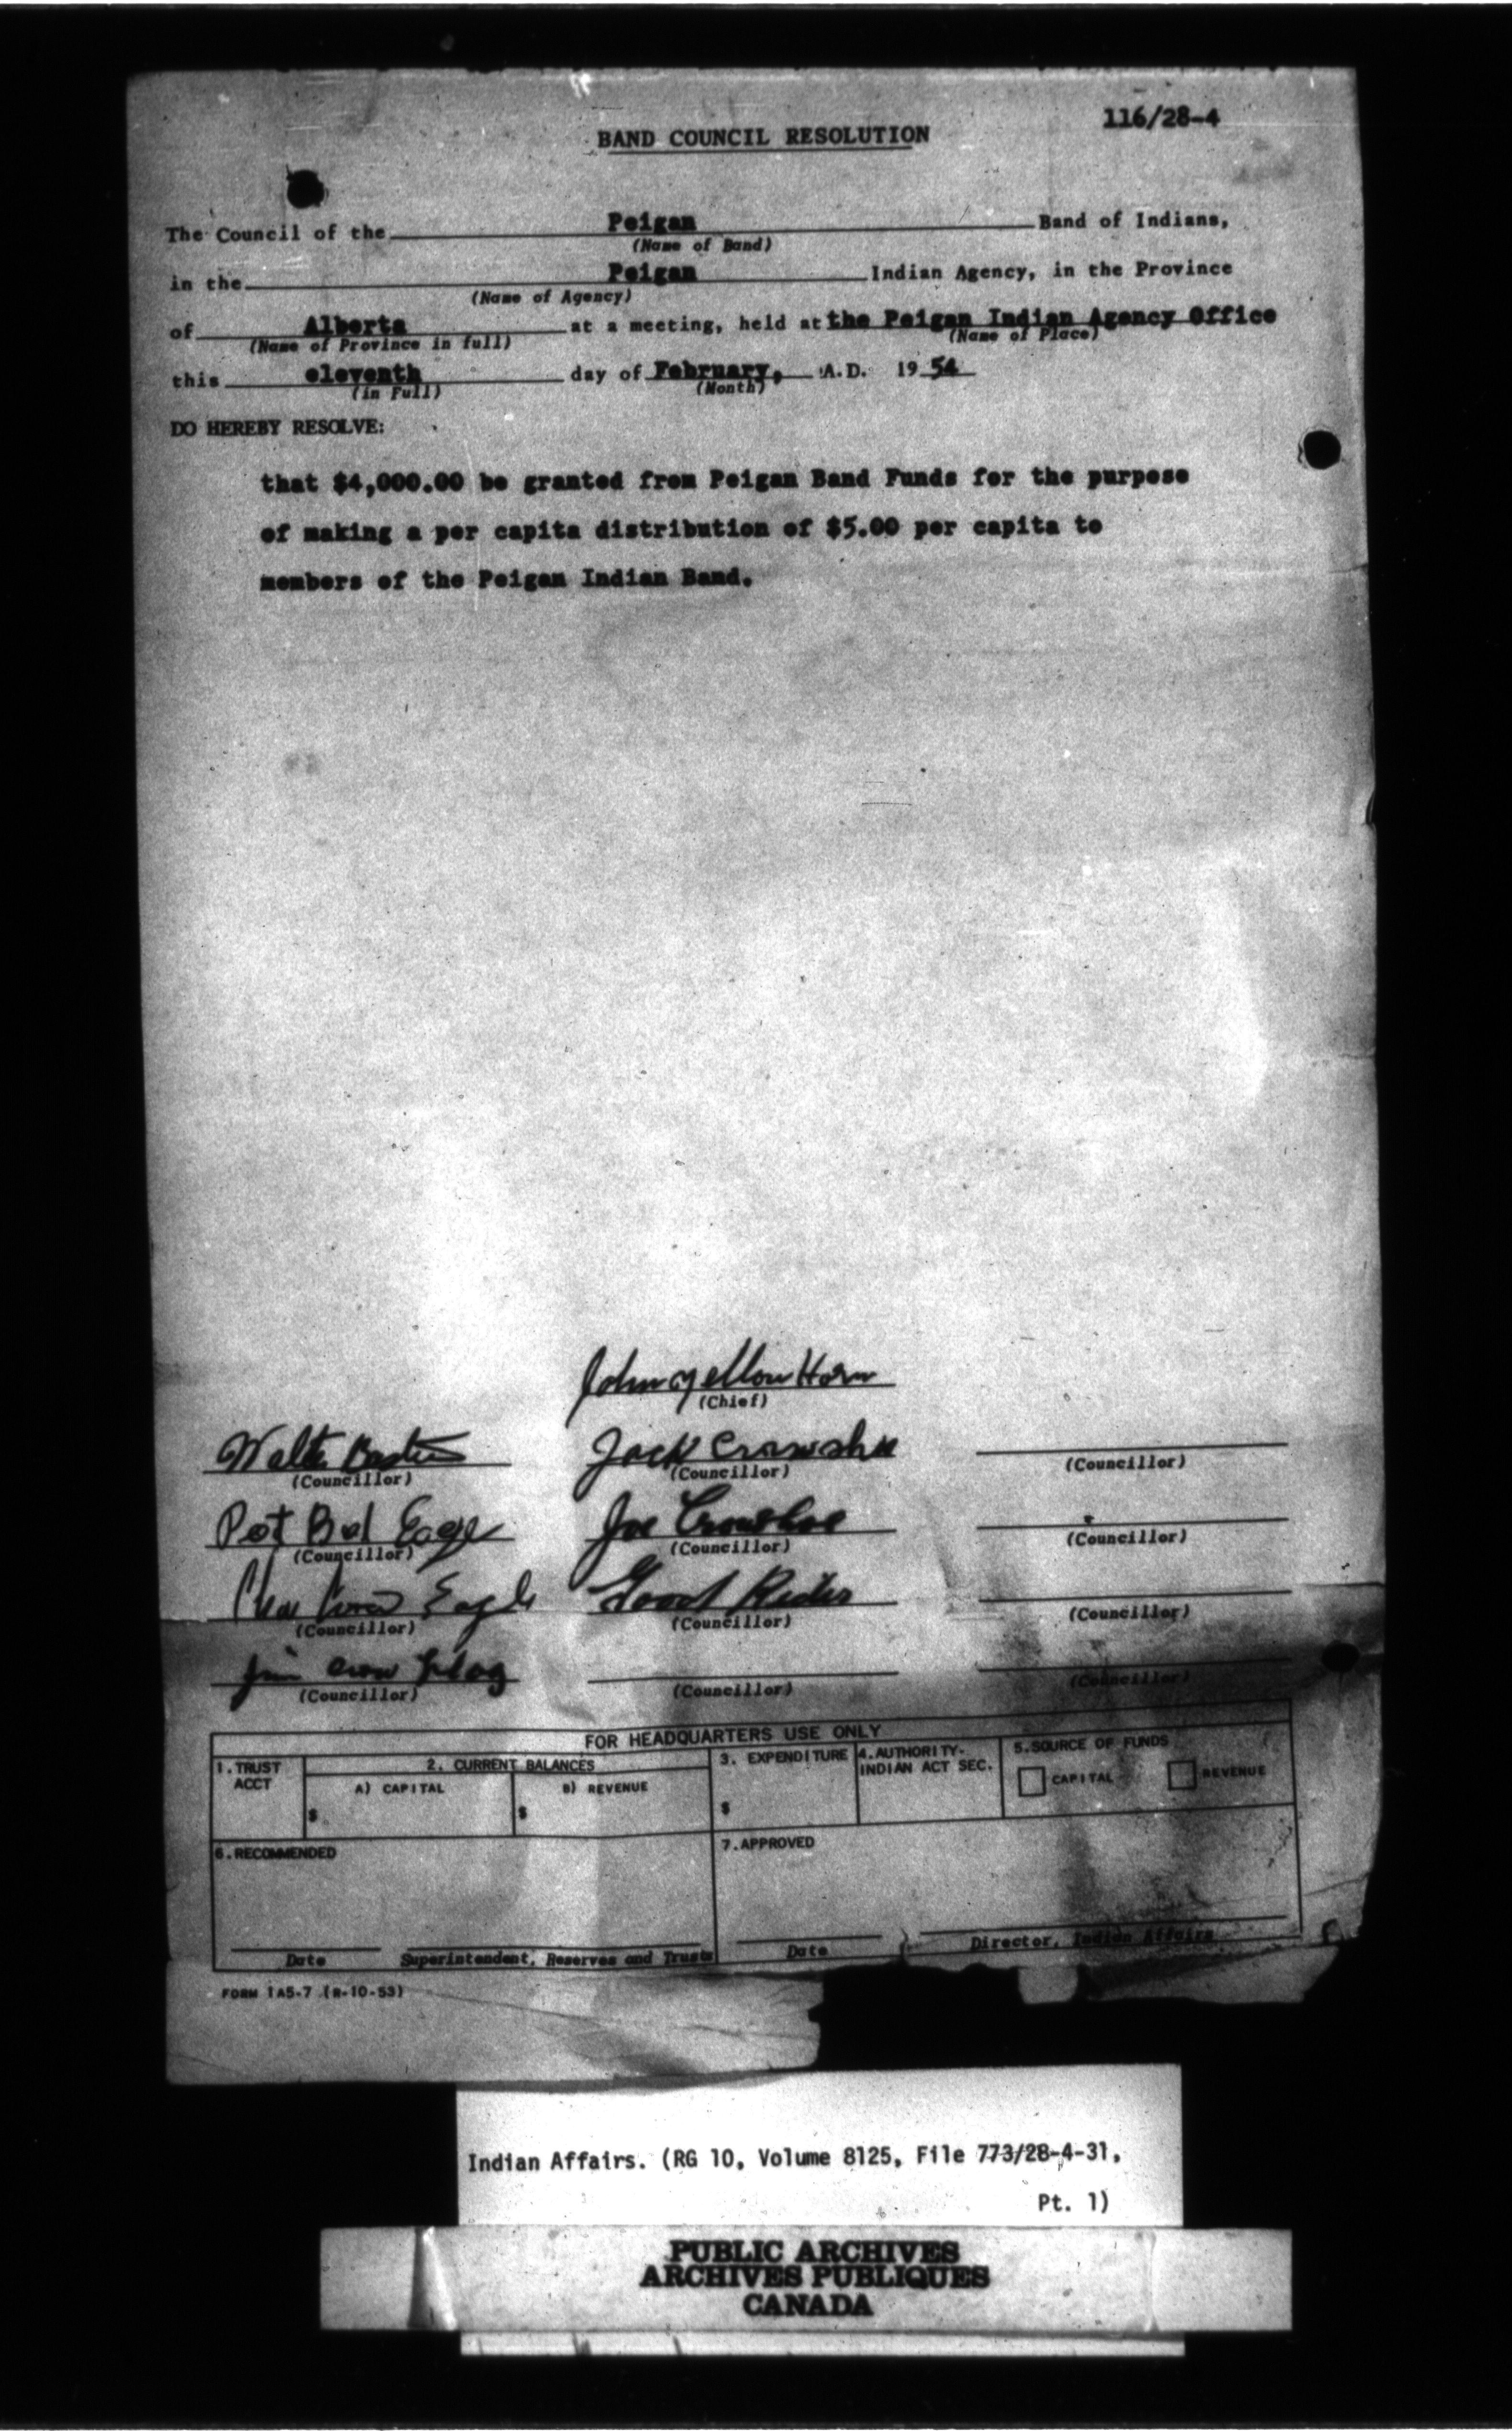 116/28-4
BAND COUNCIL RESOLUTION
The Council of the Peigan Band of Indians,
(Name of Band)
in the Peigan Indian Agency, in the Province
(Name of Agency)
of Alberta at a meeting, held at the Peigan Indian Agency Office
(Name of Province in full) (Name of Place)
this eleventh day of February, A.D. 19 54
(in Full) (Month)
DO HEREBY RESOLVE:
that $4,000.00 be granted from Peigan Band Funds for the purpose
of making a per capita distribution of $5.00 per capita to
members of the Peigan Indian Band.
John Yellow Horn
(Chief)
Walter Jack Crowshoe
(Councillor) (Councillor) (Councillor)
Pat Bad Eagle Joe Crowshoe
(Councillor) (Councillor) (Councillor)
Eagle Good Rider
(Councillor) (Councillor) (Councillor)
Jim Crow Flag
(Councillor) (Councillor) (Councillor)
FOR HEADQUARTERS USE ONLY
1. TRUST ACCT 2. CURRENT BALANCES 3. EXPENDITURE 4. AUTHORITY- INDIAN ACT SEC. 5. SOURCE OF FUNDS
A) CAPITAL B) REVENUE CAPITAL REVENUE
$ $ $
6. RECOMMENDED 7. APPROVED
Date Superintendent, Reserves and Trusts Date Director, Indian Affairs
FORM IA5-7 (R-10-53)
Indian Affairs. (RG 10, Volume 8125, File 773/28-4-31,
Pt. 1)
PUBLIC ARCHIVES
ARCHIVES PUBLIQUES
CANADA